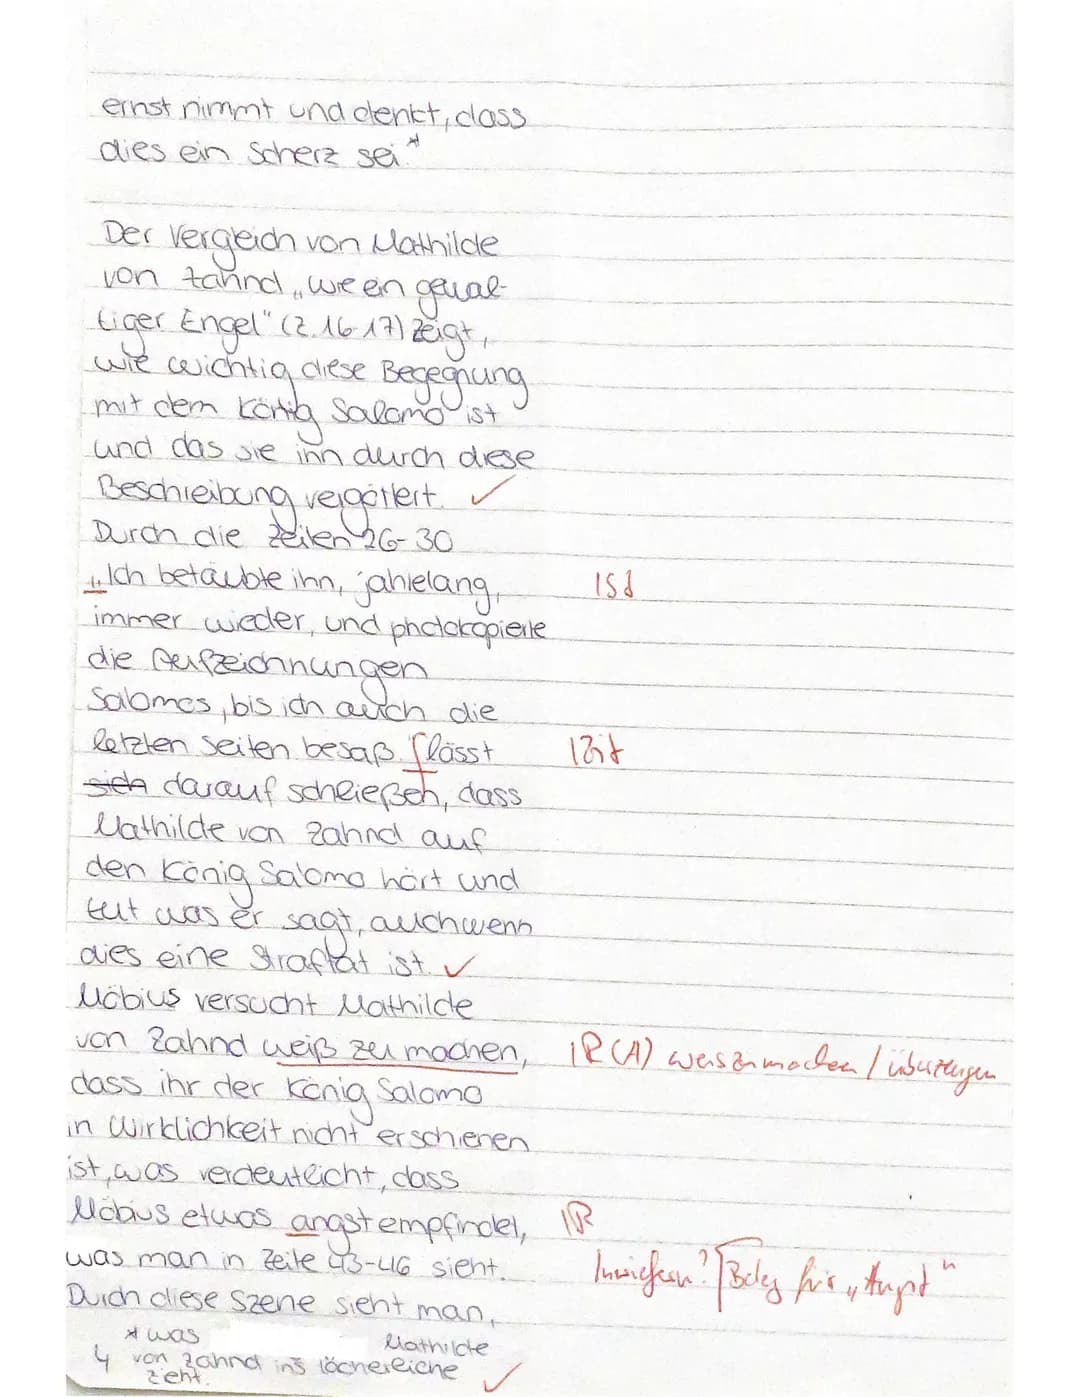 ernst nimmt und denkt, dass
dies ein Scherz sei.*
Der Vergleich von Mathilde
von Zahnd „wie ein gewal-
tiger Engel" (Z. 16-17) zeigt,
wie wichtig diese Begegnung
mit dem König Salomo ist
und das sie ihn durch diese
Beschreibung vergöttert. ✓
Durch die Zeilen 26-30
„Ich betäubte ihn, jahrelang, 1SZ
immer wieder, und photokopierte
die Aufzeichnungen
Salomos, bis ich auch die
letzten Seiten besaß. lässt 1Zit
sich darauf schließen, dass
Mathilde von Zahnd auf
den König Salomo hört und
tut was er sagt, auch wenn
dies eine Straftat ist. ✓
Möbius versucht Mathilde
von Zahnd weiß zu machen, 1R (A) weiszumachen / überzeugen
dass ihr der König Salomo
in Wirklichkeit nicht erschienen
ist, was verdeutlicht, dass
Möbius etwas angst empfindet, 1R
was man in Zeile 43-46 sieht. Inwiefern? Beleg für „Angst"
Durch diese Szene sieht man,
* was Mathilde
↳ von Zahnd ins lächereiche ✓
zieht.